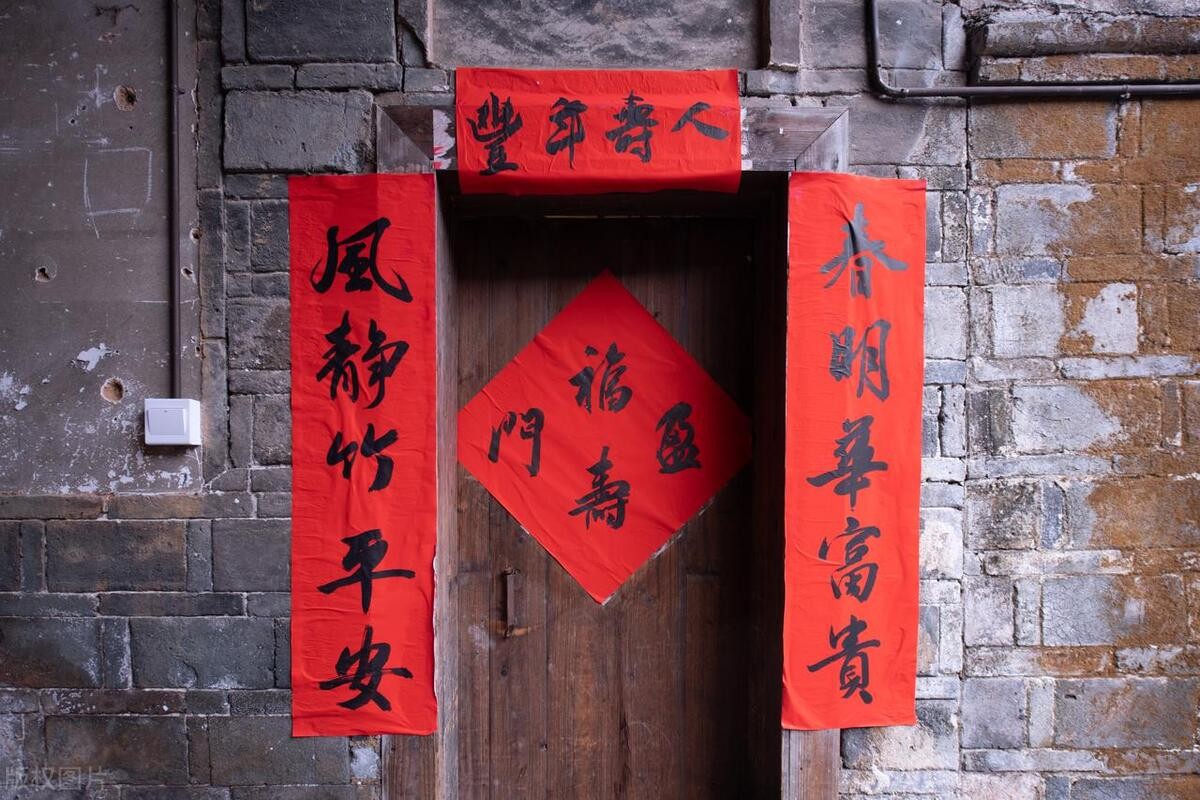 人壽年豐
春明華富貴
風靜竹平安
福壽盈門
版权图片